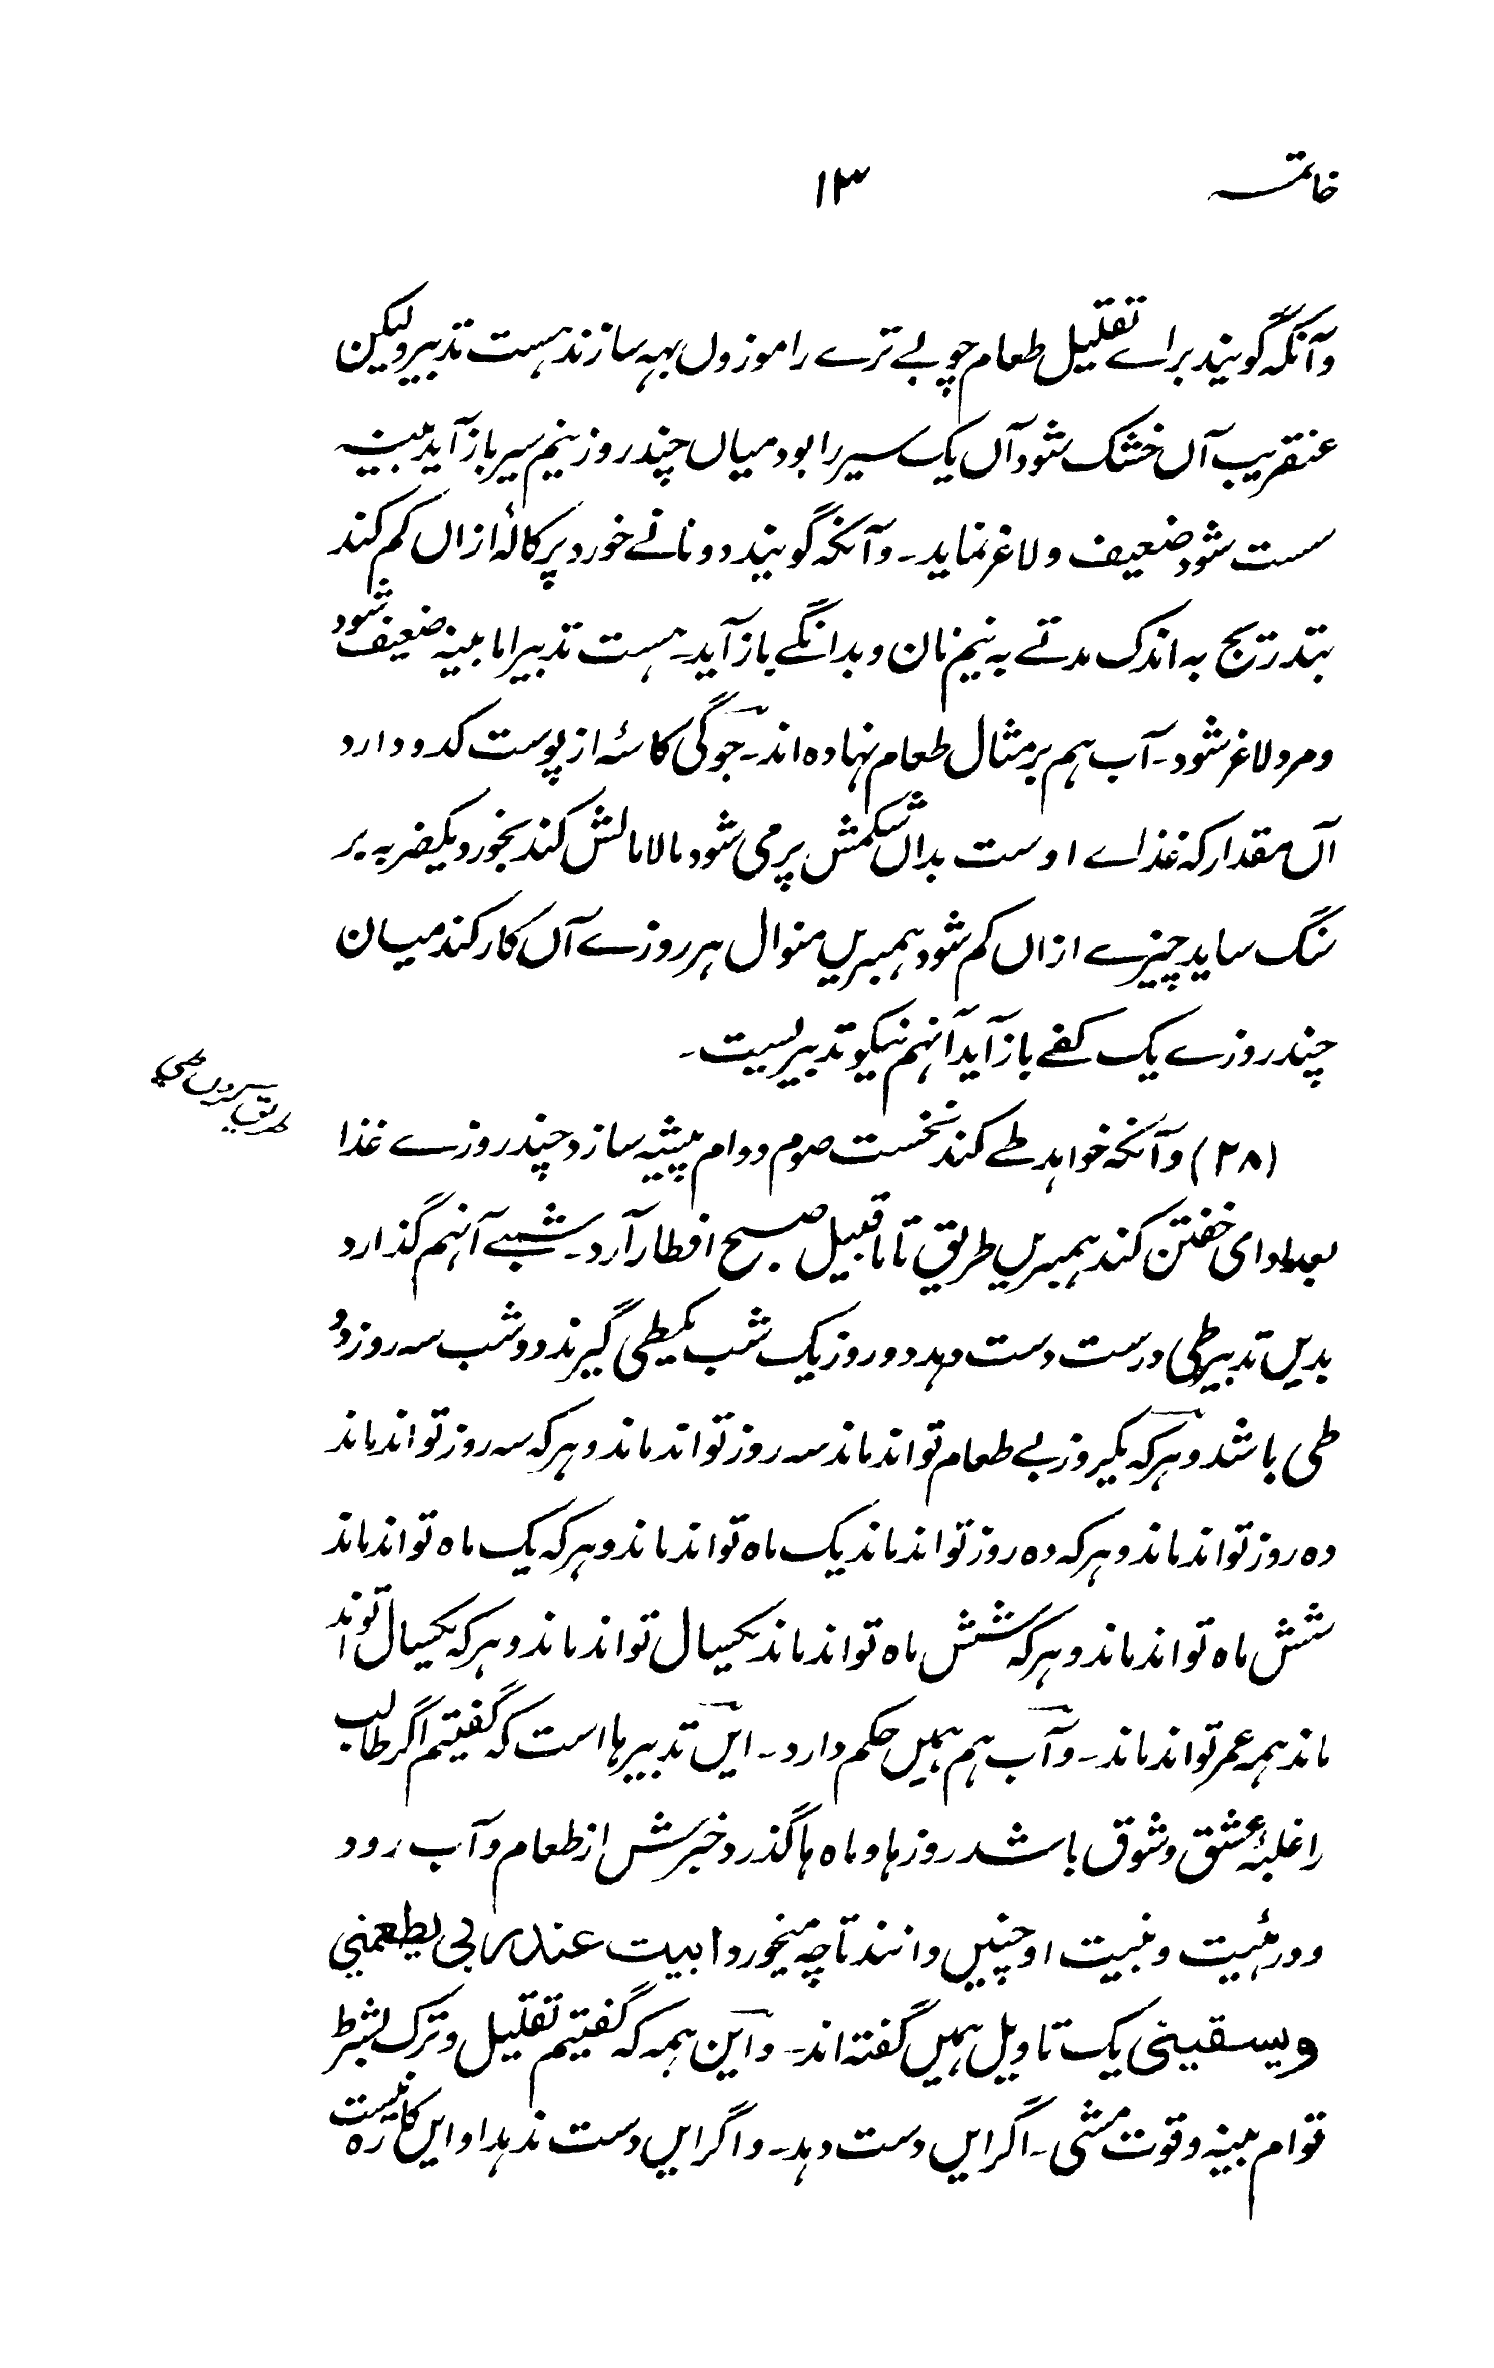 خاتمہ ۱۳
وآنکہ گویند براے تقلیل طعام چوبے ترے را موزوں بہہ سازند ہست تدبیر ولیکن
عنقریب آں خشک شود آں یک سیر را بود میاں چند روز نیم سیر باز آید بینہ
سست شود ضعیف ولاغر نماید۔ وآنکہ گویند دو نانے خورد پرکالۂ ازاں کم کند
بتدریج بہ اندک مدتے بہ نیم نان وبدانگے باز آید۔ ہست تدبیر اما بینہ ضعیف شود
ومرد لاغر شود۔ آب ہم بر مثال طعام نہادہ اند۔ جوگی کاسۂ از پوست کدو دارد
آں مقدار کہ غذاے اوست بداں شکمش پر می شود مالامالش کند بخورد یکضربہ بر
سنگ ساید چیزے ازاں کم شود ہمبریں منوال ہر روزے آں کار کند میان
چند روزے یک کفے باز آید آنہم نیکو تدبیریست۔
طریق کردن طی
(۲۸) وآنکہ خواہد طے کند نخست صوم دوام پیشہ سازد چند روزے غذا
بعد ادای خفتن کند ہمبریں طریق تا تا قبیل صبح افطار آرد۔ شبے آنہم گذارد
بدیں تدبیر طی درست دست دہد دو روز یک شب یکطی گیرند دو شب سہ روز دو
طی باشد وہرکہ یکروز بے طعام تواند ماند سہ روز تواند ماند وہرکہ سہ روز تواند ماند
دہ روز تواند ماند وہرکہ دہ روز تواند ماند یک ماہ تواند ماند وہرکہ یک ماہ تواند ماند
شش ماہ تواند ماند وہرکہ شش ماہ تواند ماند یکسال تواند ماند وہرکہ یکسال تواند
ماند ہمہ عمر تواند ماند۔ وآب ہم ہمیں حکم دارد۔ ایں تدبیرہا است کہ گفتیم اگر طالب
را غلبۂ عشق وشوق باشد روزہا وماہ ہا گذرد خبرش از طعام وآب رود
ودر ہیئت وبنیت او چنیں دانند تا چہ میخورد ابیت عند ربی یطعمنی
ویسقینی یک تاویل ہمیں گفتہ اند۔ وایں ہمہ کہ گفتیم تقلیل وترک بشرط
قوام بینہ وقوت مشی۔ اگر ایں دست دہد۔ واگر ایں دست ندہد او ایں کارہ نیست